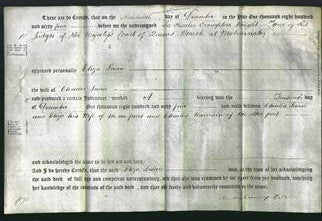 These are to Certify, that on the Nineteenth day of December in the Year One thousand eight hundred
and sixty five before me the undersigned Sir Charles Crompton Knight One of the
Judges of Her Majesty's Court of Queen's Bench at Westminster
appeared personally Eliza
the Wife of Charles
and produced a certain Indenture marked A bearing date the day of
December One thousand eight hundred and sixty five and made between Charles
and Eliza his Wife of the one part and Charles of the other part
and acknowledged the same to be her act and deed.
And I do hereby Certify, that the said Eliza was, at the time of her acknowledging
the said deed of full age and competent understanding, and that she was examined by me apart from her husband, touching
her knowledge of the contents of the said deed, and that she freely and voluntarily consented to the same.